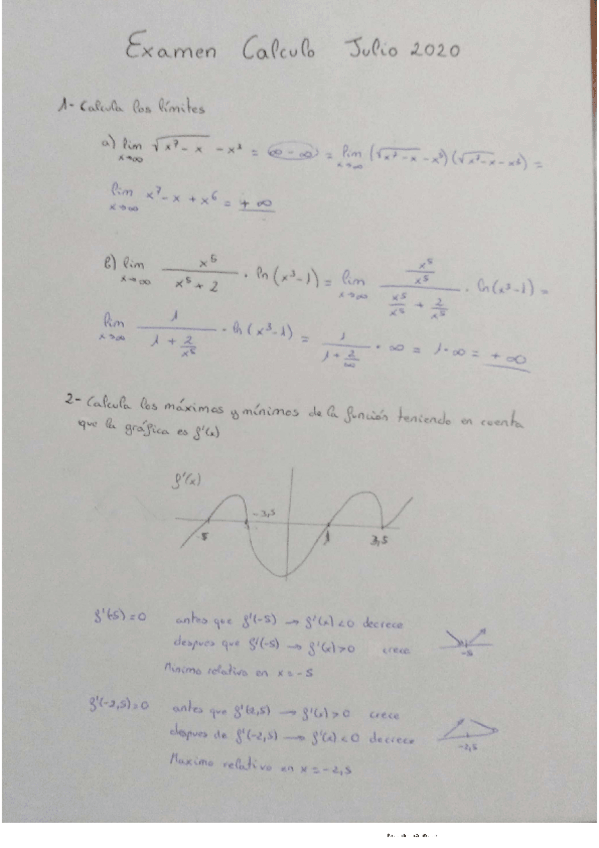 Examen Calculo Julio 2020
1- Calcula los límites
a) lim x→∞ √x⁷ - x - x³ = ∞ - ∞ = lim x→∞ (√x⁷ - x - x³)(√x⁷ - x - x³) =
lim x→∞ x⁷ - x + x⁶ = + ∞
b) lim x→∞ x⁵ / x⁵ + 2 · ln(x³ - 1) = lim x→∞ x⁵/x⁵ / x⁵/x⁵ + 2/x⁵ · ln(x³ - 1) =
lim x→∞ 1 / 1 + 2/x⁵ · ln(x³ - 1) = 1 / 1 + 2/∞ · ∞ = 1 · ∞ = + ∞
2- Calcula los máximos y mínimos de la función teniendo en cuenta
que la gráfica es f'(x)
f'(x)
-5 -3,5 1 3,5
f'(-5) = 0 antes que f'(-5) → f'(x) < 0 decrece
despues que f'(-5) → f'(x) > 0 crece
-5
Minimo relativo en x = -5
f'(-2,5) = 0 antes que f'(2,5) → f'(x) > 0 crece
despues de f'(-2,5) → f'(x) < 0 decrece
-2,5
Maximo relativo en x = -2,5